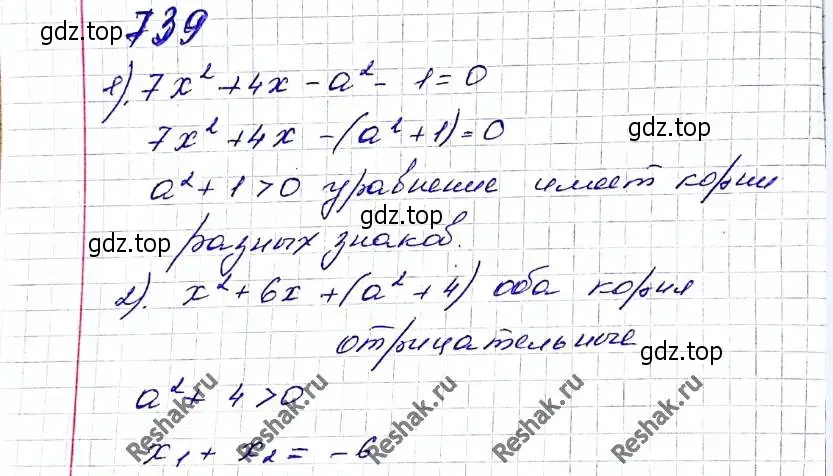 gdz.top 739
1). 7x² + 4x - a² - 1 = 0
7x² + 4x - (a² + 1) = 0 gdz.top
a² + 1 > 0 уравнение имеет корни
gdz.top
gdz.top разных знаков.
2). x² + 6x + (a² + 4) оба корня
отрицательные
gdz.top
a² + 4 > 0
Reshak.ru Reshak.ru Reshak.ru Reshak.ru
x₁ + x₂ = -6